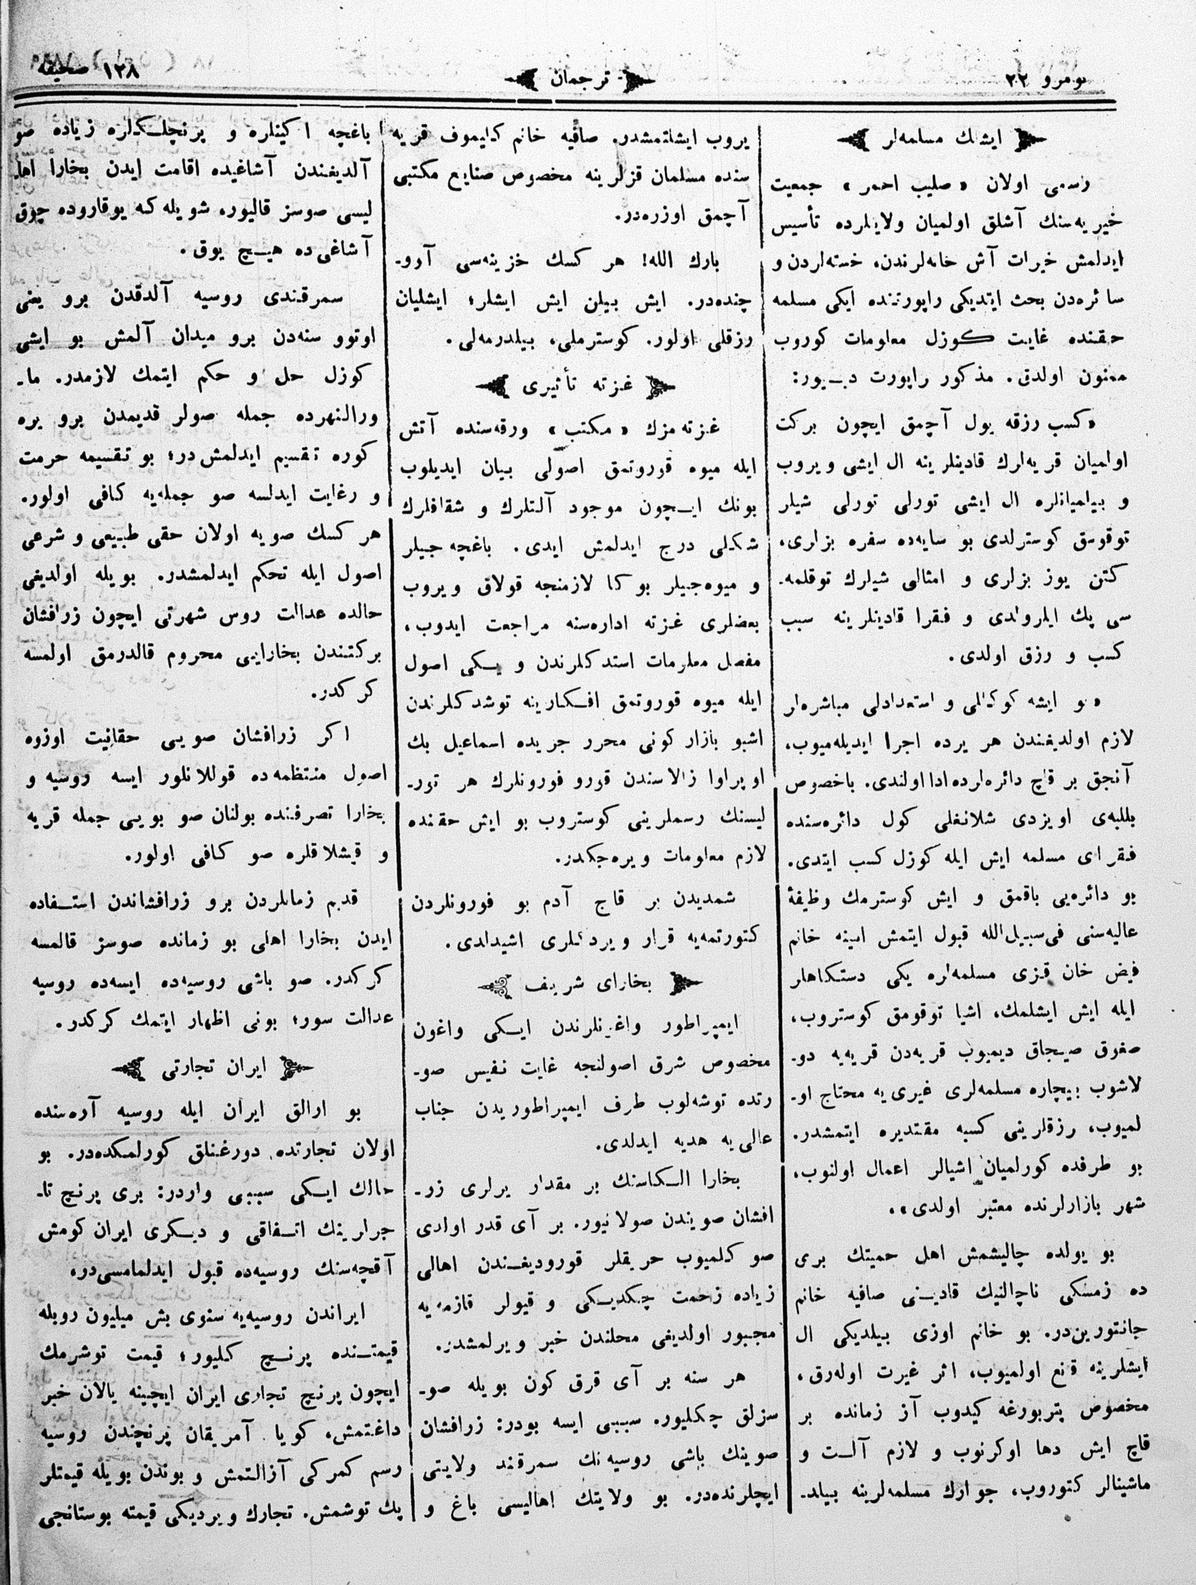 نومرو ٢٢
ترجمان
١٢٨ صحیفه
ایشلك مسلمه‌لر
رسمی اولان «صلیب احمر» جمعیت
خیریه‌سنك آشلق اولمیان ولایتلرده تأسیس
ایدلمش خیرات آش خانه‌لرندن، خسته‌لردن و
سائره‌دن بحث ایتدیكی راپورتنده ایكی مسلمه
حقنده غایت كوزل معلومات كوروب
ممنون اولدق. مذكور راپورت دیـیور:
«كسب رزقه یول آچمق ایچون بركت
اولمیان قریه‌لرك قادینلرینه ال ایشی ویروب
و بیلمیانلره ال ایشی تورلی تورلی شیلر
توقومق كوسترلدی بو سایه‌ده سفره بزلری،
كتن یوز بزلری و امثالی شیلرك توقلمه‌ـ
سی پك ایلروله‌دی و فقرا قادینلرینه سبب
كسب و رزق اولدی.
«بو ایشه كوكللی و استعدادلی مباشره‌لر
لازم اولدیغندن هر یرده اجرا ایدیله‌میوب،
آنجق بر قاچ دائره‌لرده ادا اولندی. باخصوص
بللبه‌ی اویزدی شلانغلی كول دائره‌سنده
فقرای مسلمه ایش ایله كوزل كسب ایتدی.
بو دائره‌یی باقمق و ایش كوسترمك وظیفۀ
عالیه‌سنی فی‌سبیل‌الله قبول ایتمش امینه خانم
فیض خان قیزی مسلمه‌لره یكی دستكاهلر
ایله ایش ایشلمك، اشیا توقومق كوستروب،
صغوق صیجاق دیمیوب قریه‌دن قریه‌یه دوـ
لاشوب بیچاره مسلمه‌لری غیری‌یه محتاج اوـ
لمیوب، رزقلرینی كسبه مقتدیره ایتمشدر.
بو طرفده كورلمیان اشیالر اعمال اولنوب،
شهر بازارلرنده معتبر اولدی».
بو یولده چالیشمش اهل حمیتك بری
ده زمسكی ناچالنیك قادینی صافیه خانم
جانتورین‌در. بو خانم اوزی بیلدیكی ال
ایشلرینه قانع اولمیوب، اثر غیرت اوله‌رق،
مخصوص پتربورغه كیدوب آز زمانده بر
قاچ ایش دها اوكرنوب و لازم آلـت و
ماشینالر كتوروب، جوارك مسلمه‌لرینه بیلدـ
یروب ایشلتمشدر. صافیه خانم كلیموف قریه
سنده مسلمان قزلرینه مخصوص صنایع مكتبی
آچمق اوزره‌در.
بارك الله! هر كسك خزینه‌سی آووـ
چنده‌در. ایش بیلن ایش ایشلر؛ ایشلیان
رزقلی اولور. كوسترملی، بیلدرمه‌لی.
غزته تأثیری
غزته‌مزك «مكتب» ورقه‌سنده آتش
ایله میوه قوروتمق اصولی بیان ایدیلوب
بونك ایـچون موجود آلتلرك و شقافلرك
شكلی درج ایدلمش ایدی. باغچه‌جیلر
و میوه‌جیلر بوكا لازمنجه قولاق ویروب
بعضلری غزته اداره‌سنه مراجعت ایدوب،
مفصل معلومات استدكلرندن و یـكی اصول
ایله میوه قوروتمق افـكارینه توشدكلرندن
اشبو بازار كونی محرر جریده اسماعیل بك
اوپراوا زالاسندن قورو فورونلرك هر تورـ
لیسنك رسملرینی كوستروب بو ایش حقنده
لازم معلومات ویره‌جكدر.
شمدیدن بر قاچ آدم بو فورونلردن
كتورتمه‌یه قرار ویردكلری اشیدلدی.
بخارای شریف
ایمپراطور واغونلرندن ایـكی واغون
مخصوص شرق اصولنجه غایت نفیس صوـ
رتده توشه‌لوب طرف ایمپراطوریدن جناب
عالی‌یه هدیه ایدلدی.
بخارا الـكاسنك بر مقدار یرلری زرـ
افشان صویندن صولانیور. بر آی قدر اولدی
صو كلمیوب حریقلر قورودیغـندن اهالی
زیاده زحمت چكدیـكی و قیولر قازمه‌یه
مجبور اولدیغی محلندن خبر ویرلمشدر.
هر سنه بر آی قرق كون بویله صوـ
سزلق چكلیور. سببی ایسه بودر: زرافشان
صوینك باشی روسیه‌نك سمرقند ولایتی
ایچلرنده‌در. بو ولایتك اهالیسی باغ و
باغچه اكینلره و پرنچلـكلره زیاده صو
آلدیغندن آشاغیده اقامت ایدن بخارا اهاـ
لیسی صوسز قالیور، شویله‌كه یوقاروده چوق
آشاغی‌ده هیـچ یوق.
سمرقندی روسیه آلدقدن برو یعنی
اوتوو سنه‌دن برو میدان آلمش بو ایشی
كوزل حل و حكم ایتمك لازمدر. ماـ
ورالنهرده جمله صولر قدیمدن برو یره
كوره تقسیم ایدلمش‌در؛ بو تقسیمه حرمت
و رغایت ایدلسه صو جمله‌یه كافی اولور.
هركسك صویه اولان حقی طبیعی و شرعی
اصول ایله تحكم ایدلمشدر. بویله اولدیغی
حالده عدالت روس شهرتی ایچون زرافشان
بركتندن بخارایی محروم قالدرمق اولمسه
كركدر.
اكر زرافشان صویـی حقانیت اوزره
اصول منتظمه‌ده قوللانلور ایسه روسیه و
بخارا تصرفنده بولنان صو بویـی جمله قریه
و قیشلاقلره صو كافی اولور.
قدیم زمانلردن برو زرافشاندن استـفاده
ایدن بخارا اهلی بو زمانده صوسز قالمسه
كركدر. صو باشی روسیه‌ده ایسه‌ده روسیه
عدالت سور؛ بونی اظهار ایتمك كركدر.
ایران تجارتی
بو ارالق ایران ایله روسیه آره‌سنده
اولان تجارتده دورغنلق كورلمكده‌در. بو
حالك ایـكی سببی واردر: بری پرنـچ تاـ
جرلرینك اتـفاقی و دیـكری ایران كومش
آقچه‌سنك روسیه‌ده قبول ایدلمامسی‌در.
ایراندن روسیه‌یه سنوی بش میلیون روبله
قیمتـنده پرنـچ كلیور؛ قیمت توشرمك
ایچون پرنچ تجاری ایران ایچینه یالان خبر
داغتمش، كویا آمریقان پرنچندن روسیه
رسم كمركی آزالتمش و بوندن بویله قیمتلر
پك توشمش. تجارك ویردیكی قیمته بوستانجی